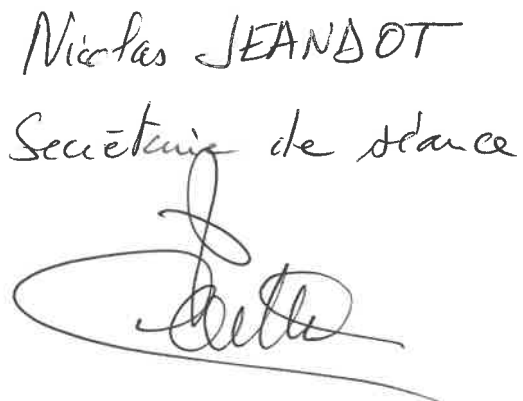 Nicolas JEANDOT
Secrétaire de séance